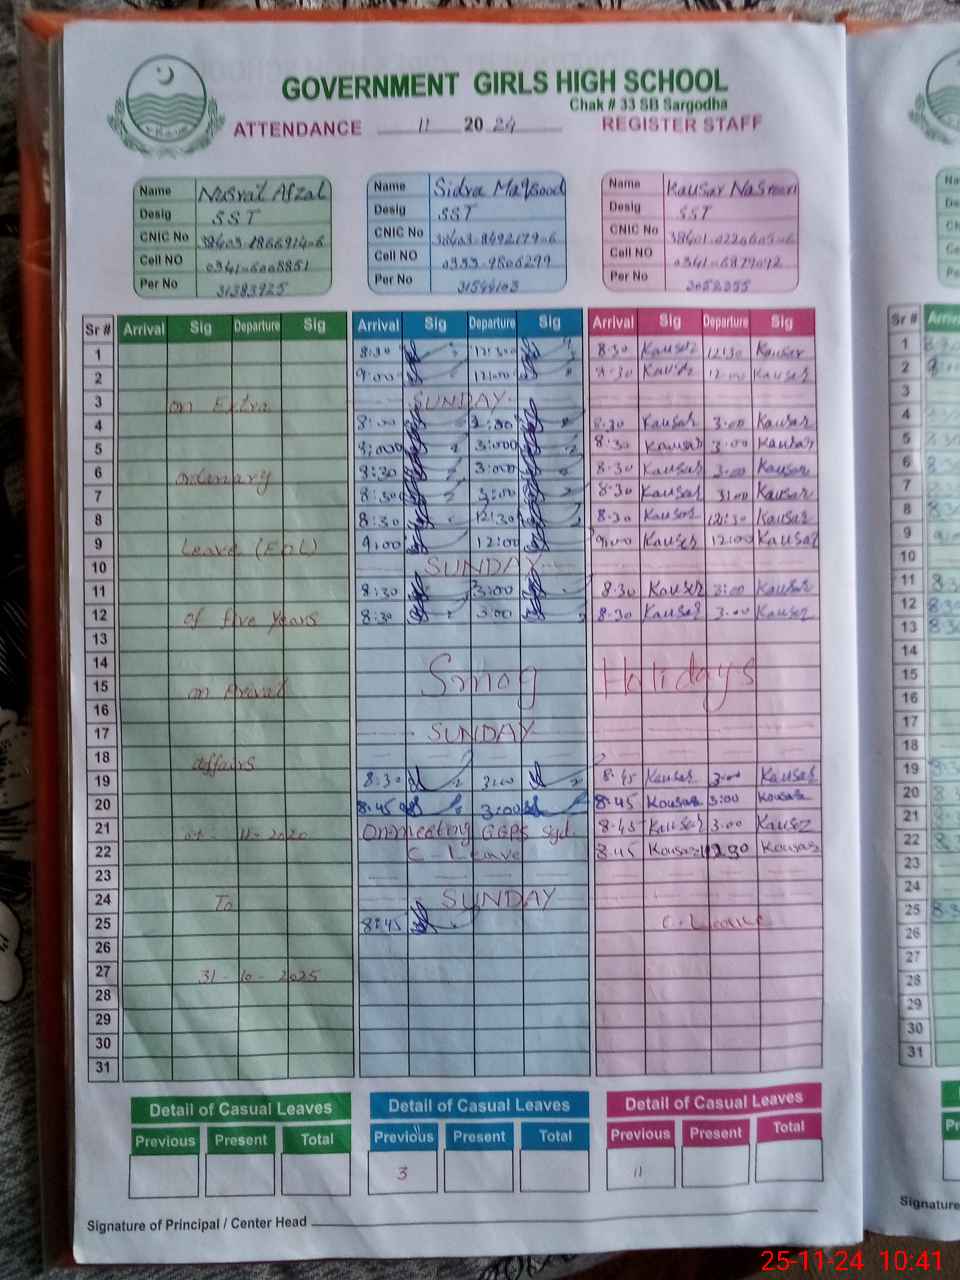 GOVERNMENT GIRLS HIGH SCHOOL
Chak # 33 SB Sargodha
ATTENDANCE 11 20 24 REGISTER STAFF
Name Nusrat Afzal
Desig SST
CNIC No
Cell NO 0341-6008851
Per No 31383925
Name Sidra Maqsood
Desig SST
CNIC No 38403-8492179-6
Cell NO 0333-9806299
Per No 31544103
Name Kausar Nasreen
Desig SST
CNIC No 38401-0220605-6
Cell NO 0341-6879092
Per No
Sr # Arrival Sig Departure Sig Arrival Sig Departure Sig Arrival Sig Departure Sig
1 8:30 12:30 8:30 Kausar 12:30 Kausar
2 9:00 12:00 8:30 Kausar 12:00 Kausar
3 on Extra SUNDAY
4 8:00 8:30 Kausar 3:00 Kausar
5 3:00 8:30 Kausar 3:00 Kausar
6 ordenary 8:30 3:00 8:30 Kausar 3:00 Kausar
7 8:30 3:00 8:30 Kausar 3:00 Kausar
8 8:30 12:30 8:30 Kausar 12:30 Kausar
9 Leave (EOL) 9:00 12:00 9:00 Kausar 12:00 Kausar
10 SUNDAY
11 8:30 3:00 8:30 Kausar 3:00 Kausar
12 of five years 8:30 3:00 8:30 Kausar 3:00 Kausar
13
14
15 on Smog Holidays
16
17 SUNDAY
18 affairs
19 8:30 3:00 8:45 Kausar 3:00 Kausar
20 8:45 3:00 8:45 Kausar 3:00 Kausar
21 01-11-2020 On meeting GGPS 8:45 Kausar 3:00 Kausar
22 C-Leave 8:45 Kausar 12:30 Kausar
23
24 To SUNDAY
25 8:45 C-Leave
26
27 31-10-2025
28
29
30
31
Detail of Casual Leaves Detail of Casual Leaves Detail of Casual Leaves
Previous Present Total Previous Present Total Previous Present Total
3 11
Signature of Principal / Center Head
Sr #
1
2
3
4
5
6
7
8
9
10
11
12
13
14
15
16
17
18
19
20
21
22
23
24
25
26
27
28
29
30
31
25-11-24 10:41